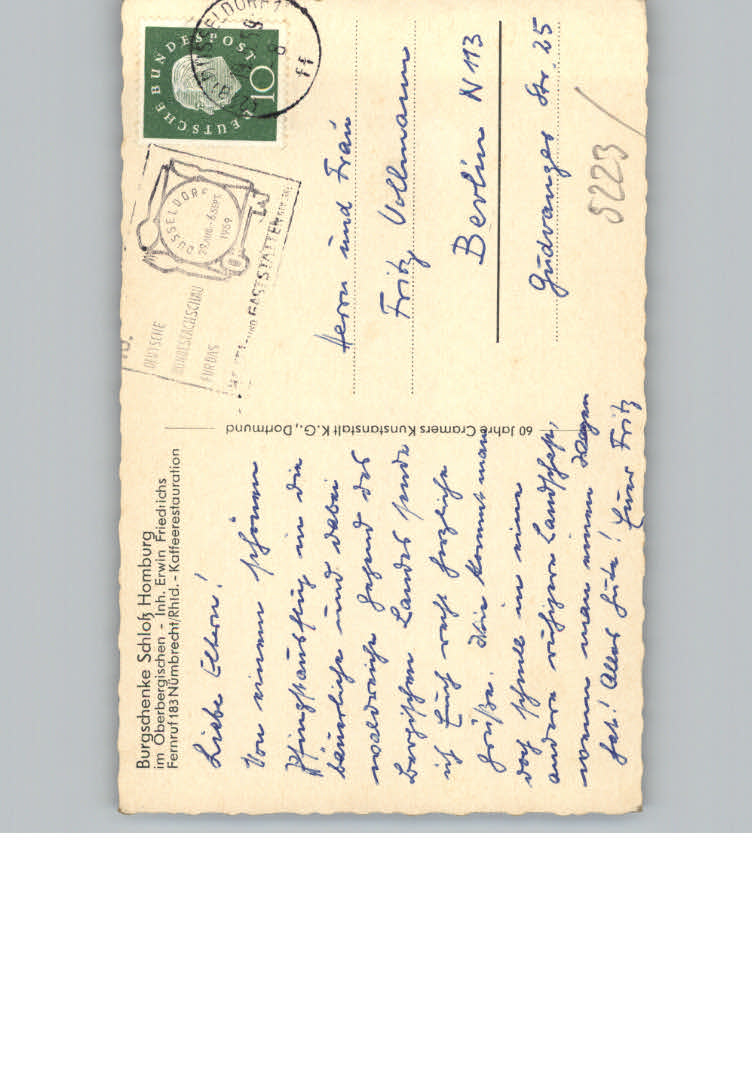 Burgschenke Schloß Homburg
im Oberbergischen - Inh. Erwin Friedrichs
Fernruf 183 Nümbrecht/Rhld. - Kaffeerestauration
Liebe Eltern!
Von einem schönen
Pfingstausflug in die
bäuerliche und dabei
waldreiche Gegend des
Bergischen Landes sende
ich Euch recht herzliche
Grüße. Wie kommt man
doch schnell in eine
andere ruhigere Landschaft,
wenn man einen Wagen
hat! Alles Gute! Euer Fritz
60 Jahre Cramers Kunstanstalt K.G., Dortmund
DÜSSELDORF 1
59
DEUTSCHE BUNDESPOST
10
DÜSSELDORF
1959
DEUTSCHE
BUNDESFACHSCHAU
FÜR DAS
HOTEL- UND GASTSTÄTTEN
Herrn und Frau
Fritz Vollmann
Berlin N 113
Gudvanger Str. 25
5223